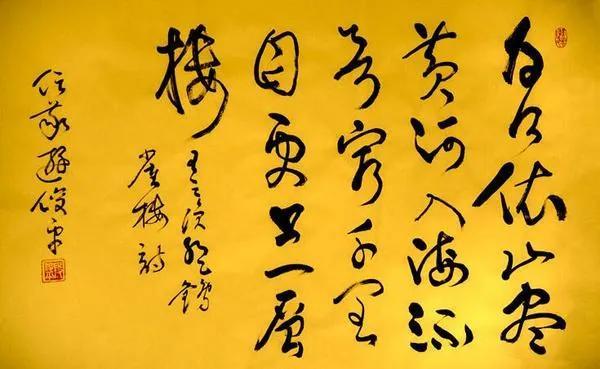 白日依山尽
黄河入海流
欲穷千里
目更上一层
楼
王之涣登鹳
雀楼诗